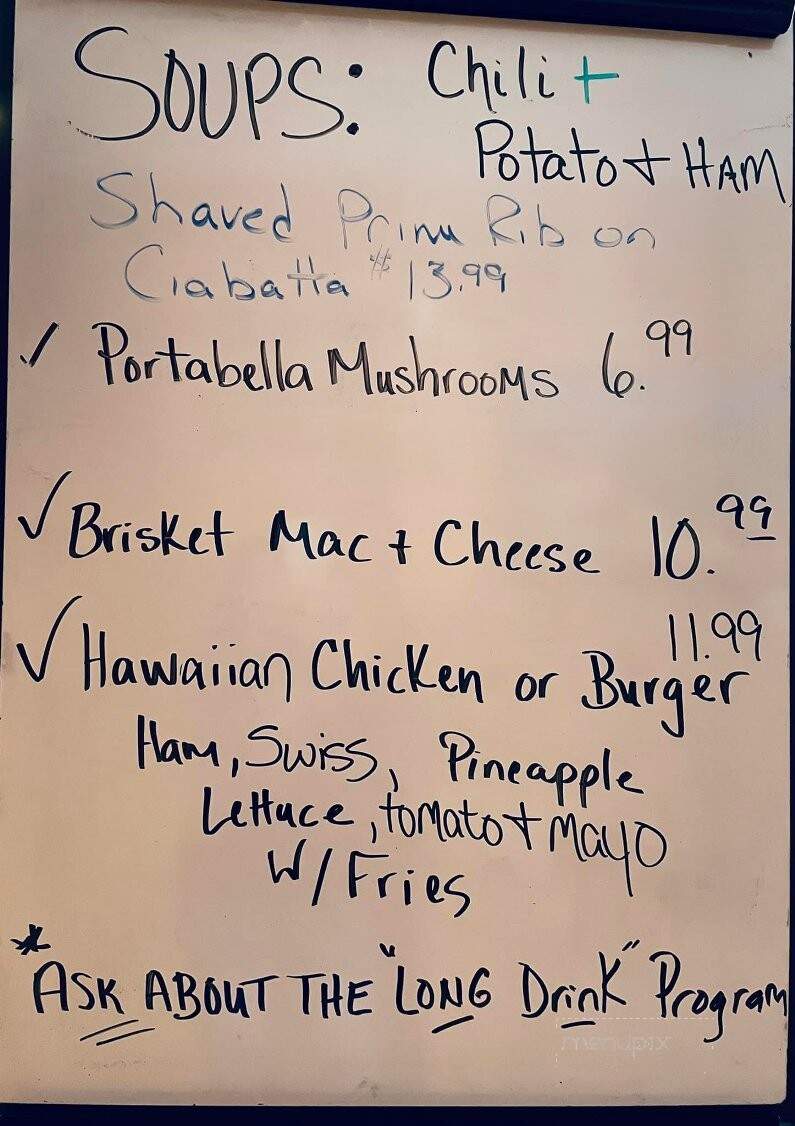 SOUPS: Chili +
Potato + HAM
Shaved Prime Rib on
Ciabatta $13.99
✓ Portabella Mushrooms 6.99
✓ Brisket Mac + Cheese 10.99
11.99
✓ Hawaiian Chicken or Burger
Ham, Swiss, Pineapple
Lettuce, tomato + mayo
W/ Fries
* ASK ABOUT THE "LONG Drink" Program